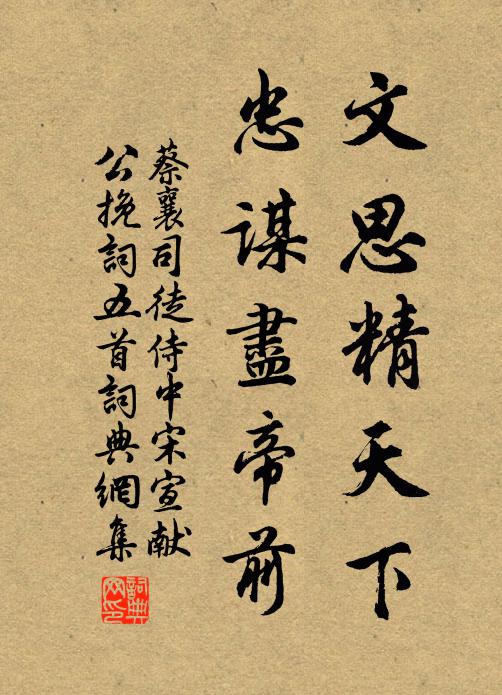 文思精天下
忠謀盡帝前
蔡襄司徒侍中宋宣献
公挽詞五首詞典網集
詞典网印